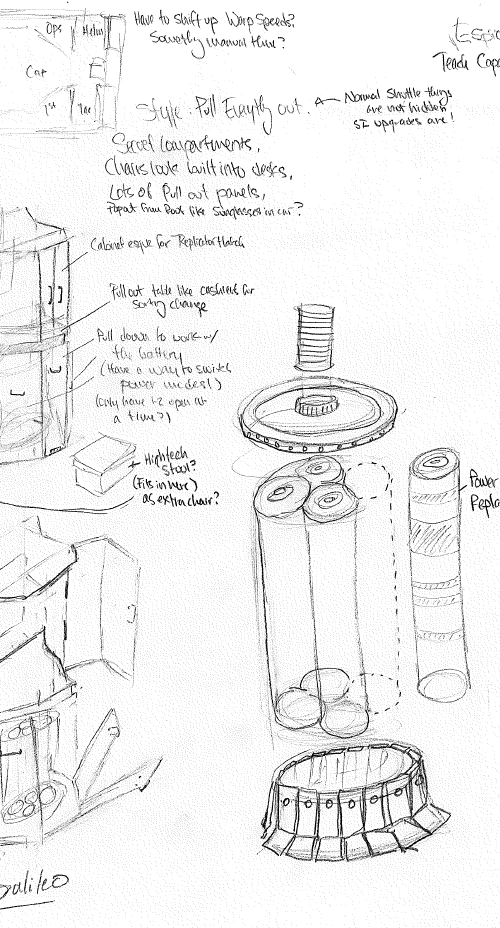 Ops Helm
Car
1st Tac
Have to shift up Warp Speeds?
Something manual there?
Espio
Teach Capa
Style: Pull Everything out.
Normal Shuttle things
are not hidden
SI upgrades are!
Secret Compartments,
Chairs look built into desks,
Lots of Pull out panels,
Popout from Roof like Sunglasses in car?
Cabinet esque for Replicator Hatch
Pull out table like cashiers for
sorting change
Pull down to work w/
the battery
(Have a way to switch
power modes!)
(only have 1-2 open at
a time?)
High tech
Stool?
(Fits in here)
as extra chair?
Power
Repla
Galileo